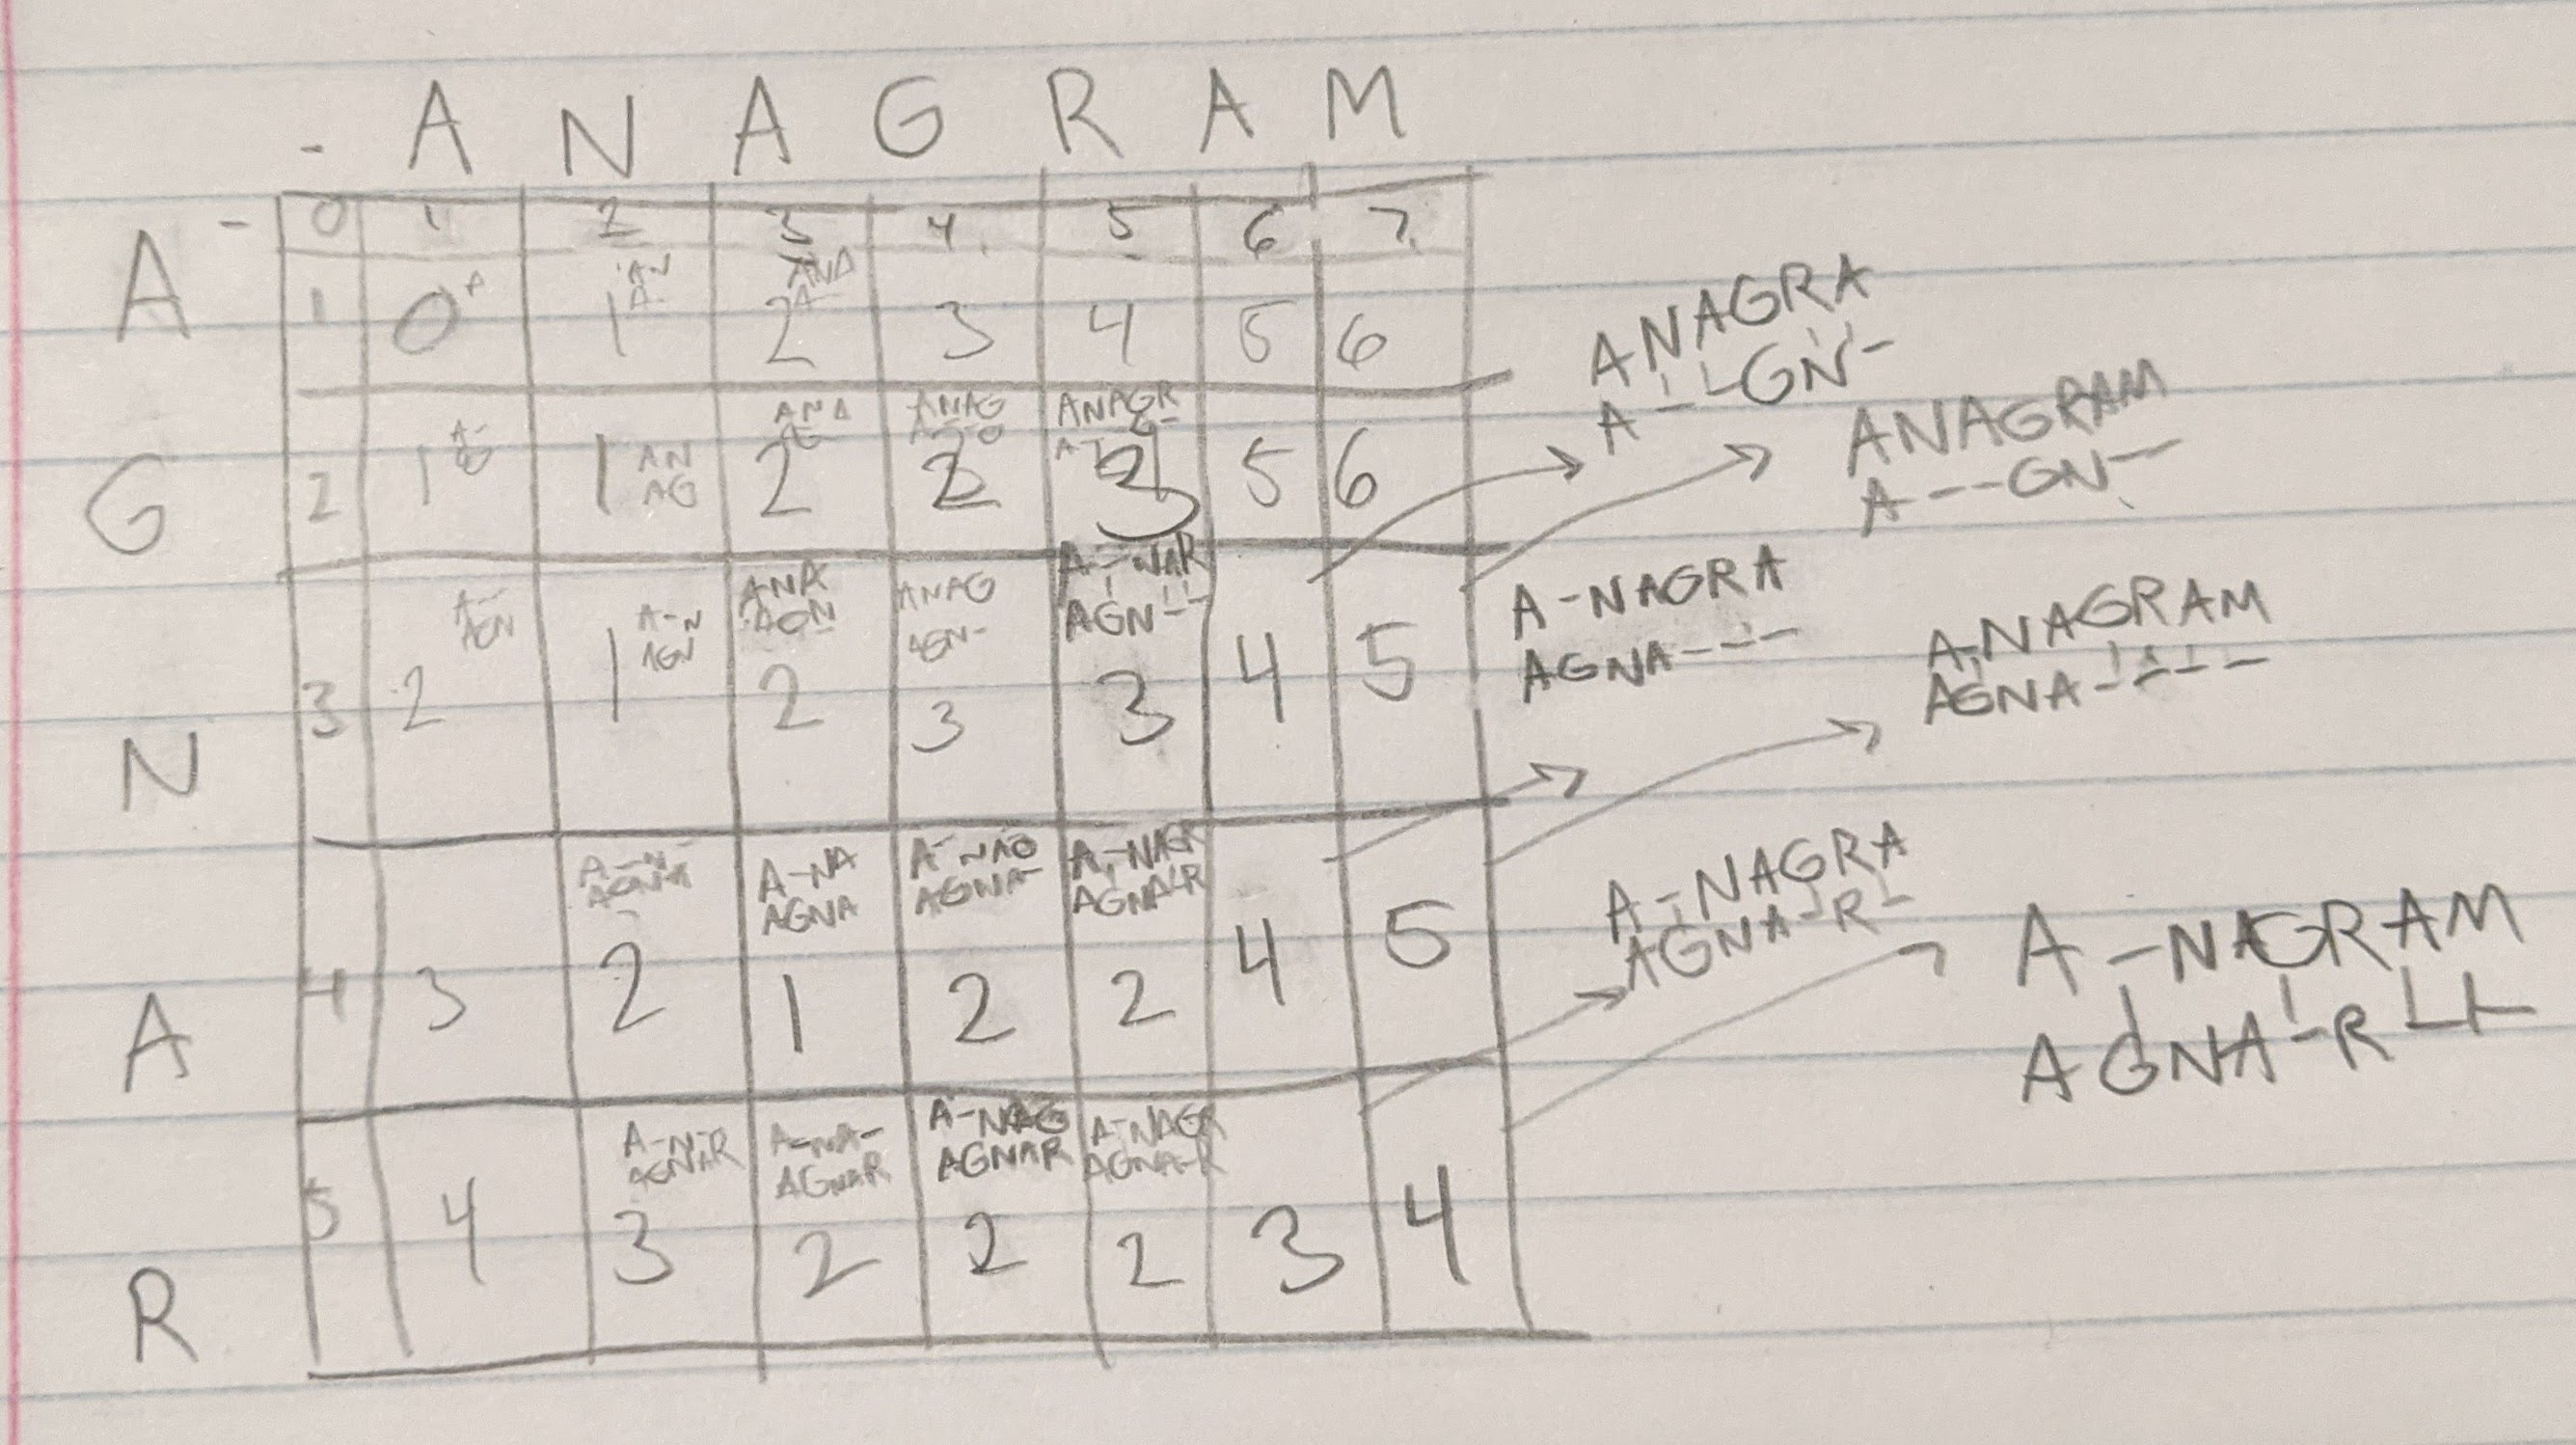 - A N A G R A M
- 0 1 2 3 4 5 6 7
A 1 0 A 1 AN A- 2 ANA A- 3 4 5 6
G 2 1 A- AG 1 AN AG 2 ANA AG 2 ANAG 3 ANAGR 5 6
N 3 2 A-- AGN 1 A-N AGN 2 ANA AGN 3 ANAG AGN- 3 AGN-- 4 5
A 4 3 2 A-N- AGNA 1 A-NA AGNA 2 A-NAG AGNA- 2 A-NAGR 4 5
R 5 4 3 A-N-R AGNAR 2 A-NA- AGNAR 2 A-NAG AGNAR 2 A-NAGR AGNA-R 3 4
ANAGRA
A---GN-
ANAGRAM
A---GN--
A-NAGRA
AGNA---
A-NAGRAM
AGNA----
A-NAGRA
AGNA-R-
A-NAGRAM
AGNA-R--